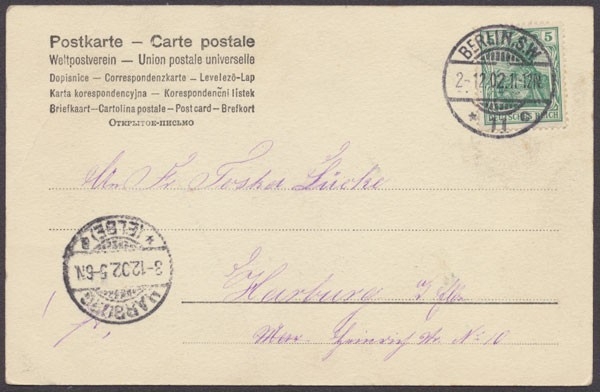 Postkarte – Carte postale
Weltpostverein – Union postale universelle
Dopisnice – Correspondenzkarte – Levelező-Lap
Karta korespondencyjna – Korespondenční lístek
Briefkaart – Cartolina postale – Post card – Brefkort
Открытое письмо
BERLIN. S.W.
2-12.02.11-12N.
* 11 c
5
DEUTSCHES REICH
An Fr. Toska Lücke
* (ELBE) *
3-12.02.5-6N.
HARBURG
Harburg a/ Elbe
Heinrich Str. No 10